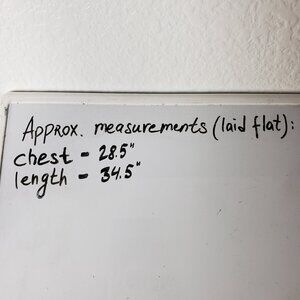 Approx. measurements (laid flat):
chest - 28.5"
length - 34.5"